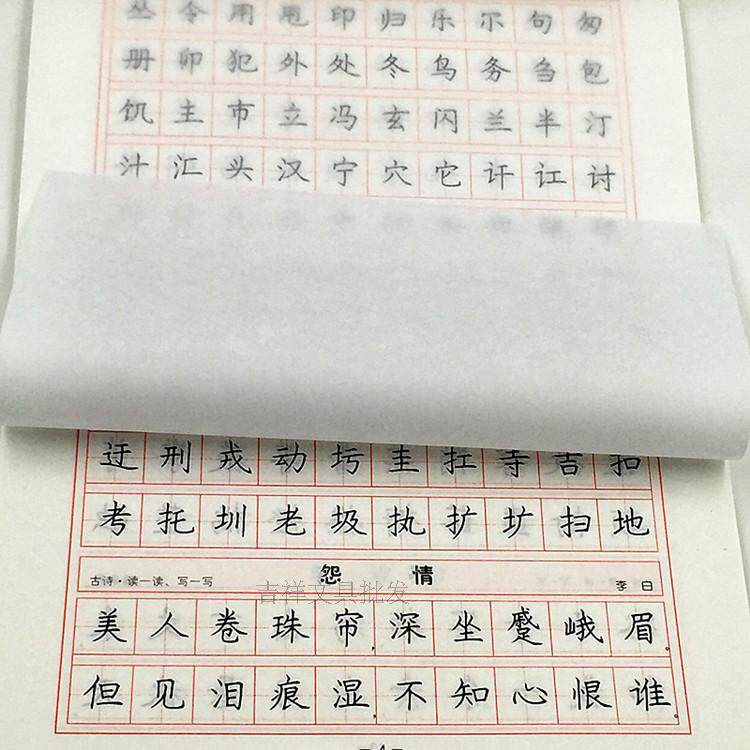 丛令用甩印归乐尔句匆
册卯犯外处冬鸟务刍包
饥主市立冯玄闪兰半汀
汁汇头汉宁穴它讦讧讨
迂刑戎动圬圭扛寺吉扣
考托圳老圾执扩圹扫地
古诗·读一读、写一写 怨情 李白
吉祥文具批发
美人卷珠帘,深坐蹙峨眉。
但见泪痕湿,不知心恨谁。
–4–